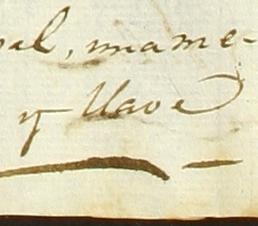 al, una me-
y llave